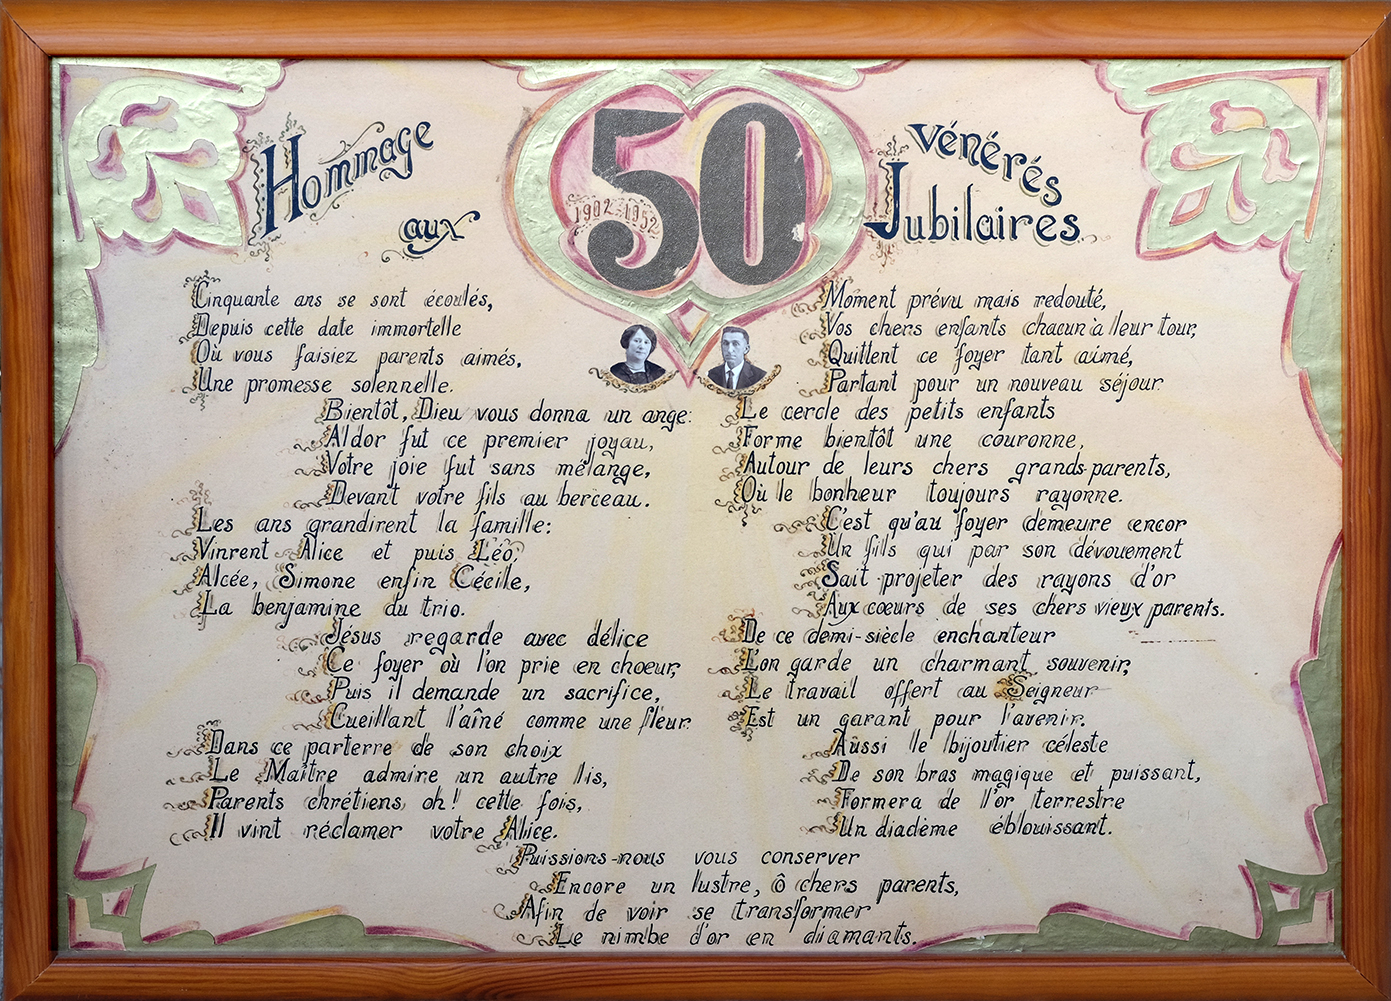 Hommage
aux
50
1902-1952
vénérés
Jubilaires
Cinquante ans se sont écoulés,
Depuis cette date immortelle
Où vous faisiez parents aimés,
Une promesse solennelle.
Bientôt, Dieu vous donna un ange:
Aldor fut ce premier joyau,
Votre joie fut sans mélange,
Devant votre fils au berceau.
Les ans grandirent la famille:
Vinrent Alice et puis Léo,
Alcée, Simone enfin Cécile,
La benjamine du trio.
Jésus regarde avec délice
Ce foyer où l'on prie en choeur,
Puis il demande un sacrifice,
Cueillant l'aîné comme une fleur.
Dans ce parterre de son choix
Le Maître admire un autre lis,
Parents chrétiens, oh! cette fois,
Il vint réclamer votre Alice.
Moment prévu mais redouté,
Vos chers enfants chacun à leur tour,
Quittent ce foyer tant aimé,
Partant pour un nouveau séjour.
Le cercle des petits enfants
Forme bientôt une couronne,
Autour de leurs chers grands-parents,
Où le bonheur toujours rayonne.
C'est qu'au foyer demeure encor
Un fils qui par son dévouement
Sait projeter des rayons d'or
Aux cœurs de ses chers vieux parents.
De ce demi-siècle enchanteur
L'on garde un charmant souvenir,
Le travail offert au Seigneur
Est un garant pour l'avenir.
Aussi le bijoutier céleste
De son bras magique et puissant,
Formera de l'or terrestre
Un diadème éblouissant.
Puissions-nous vous conserver
Encore un lustre, ô chers parents,
Afin de voir se transformer
Le nimbe d'or en diamants.